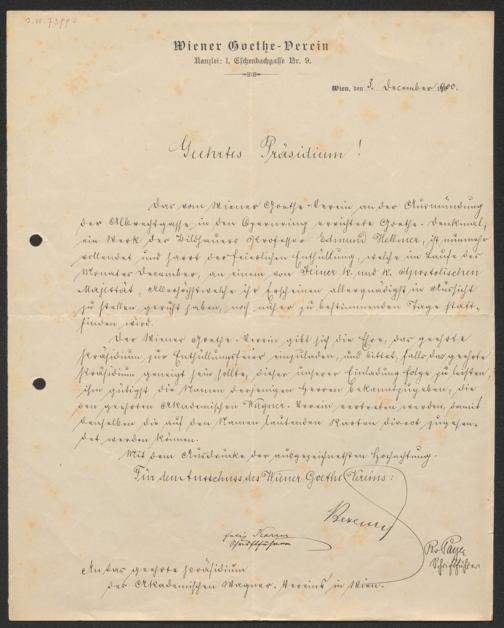 I.N. 73990
Wiener Goethe-Verein
Kanzlei: I. Eschenbachgasse Nr. 9.
Wien, den 3. December 1900.
Geehrtes Präsidium!
Das vom Wiener Goethe-Verein an der Ausmündung
der Albrechtgasse in den Opernring errichtete Goethe-Denkmal,
ein Werk des Bildhauers Professor Edmund Hellmer, ist nunmehr
vollendet und harrt der feierlichen Enthüllung, welche im Laufe des
Monates December, an einem von Seiner k. und k. Apostolischen
Majestät, Allerhöchstwelche ihr Erscheinen allergnädigst in Aussicht
zu stellen geruht haben, noch näher zu bestimmenden Tage statt-
finden wird.
Der Wiener Goethe-Verein gibt sich die Ehre, das geehrte
Präsidium zur Enthüllungsfeier einzuladen, und bittet, falls das geehrte
Präsidium geneigt sein sollte, dieser unserer Einladung Folge zu leisten,
ihm gütigst die Namen derjenigen Herren bekanntzugeben, die
den geehrten Akademischen Wagner-Verein vertreten werden, damit
denselben die auf den Namen lautenden Karten direct zugesen-
det werden können.
Mit dem Ausdrucke der ausgezeichnetsten Hochachtung.
Für den Ausschuss des Wiener Goethe-Vereins:
Bezecny
Felix Karrer
Schriftführer
Payer
Schriftführer
An das geehrte Präsidium
des Akademischen Wagner-Vereins in Wien.